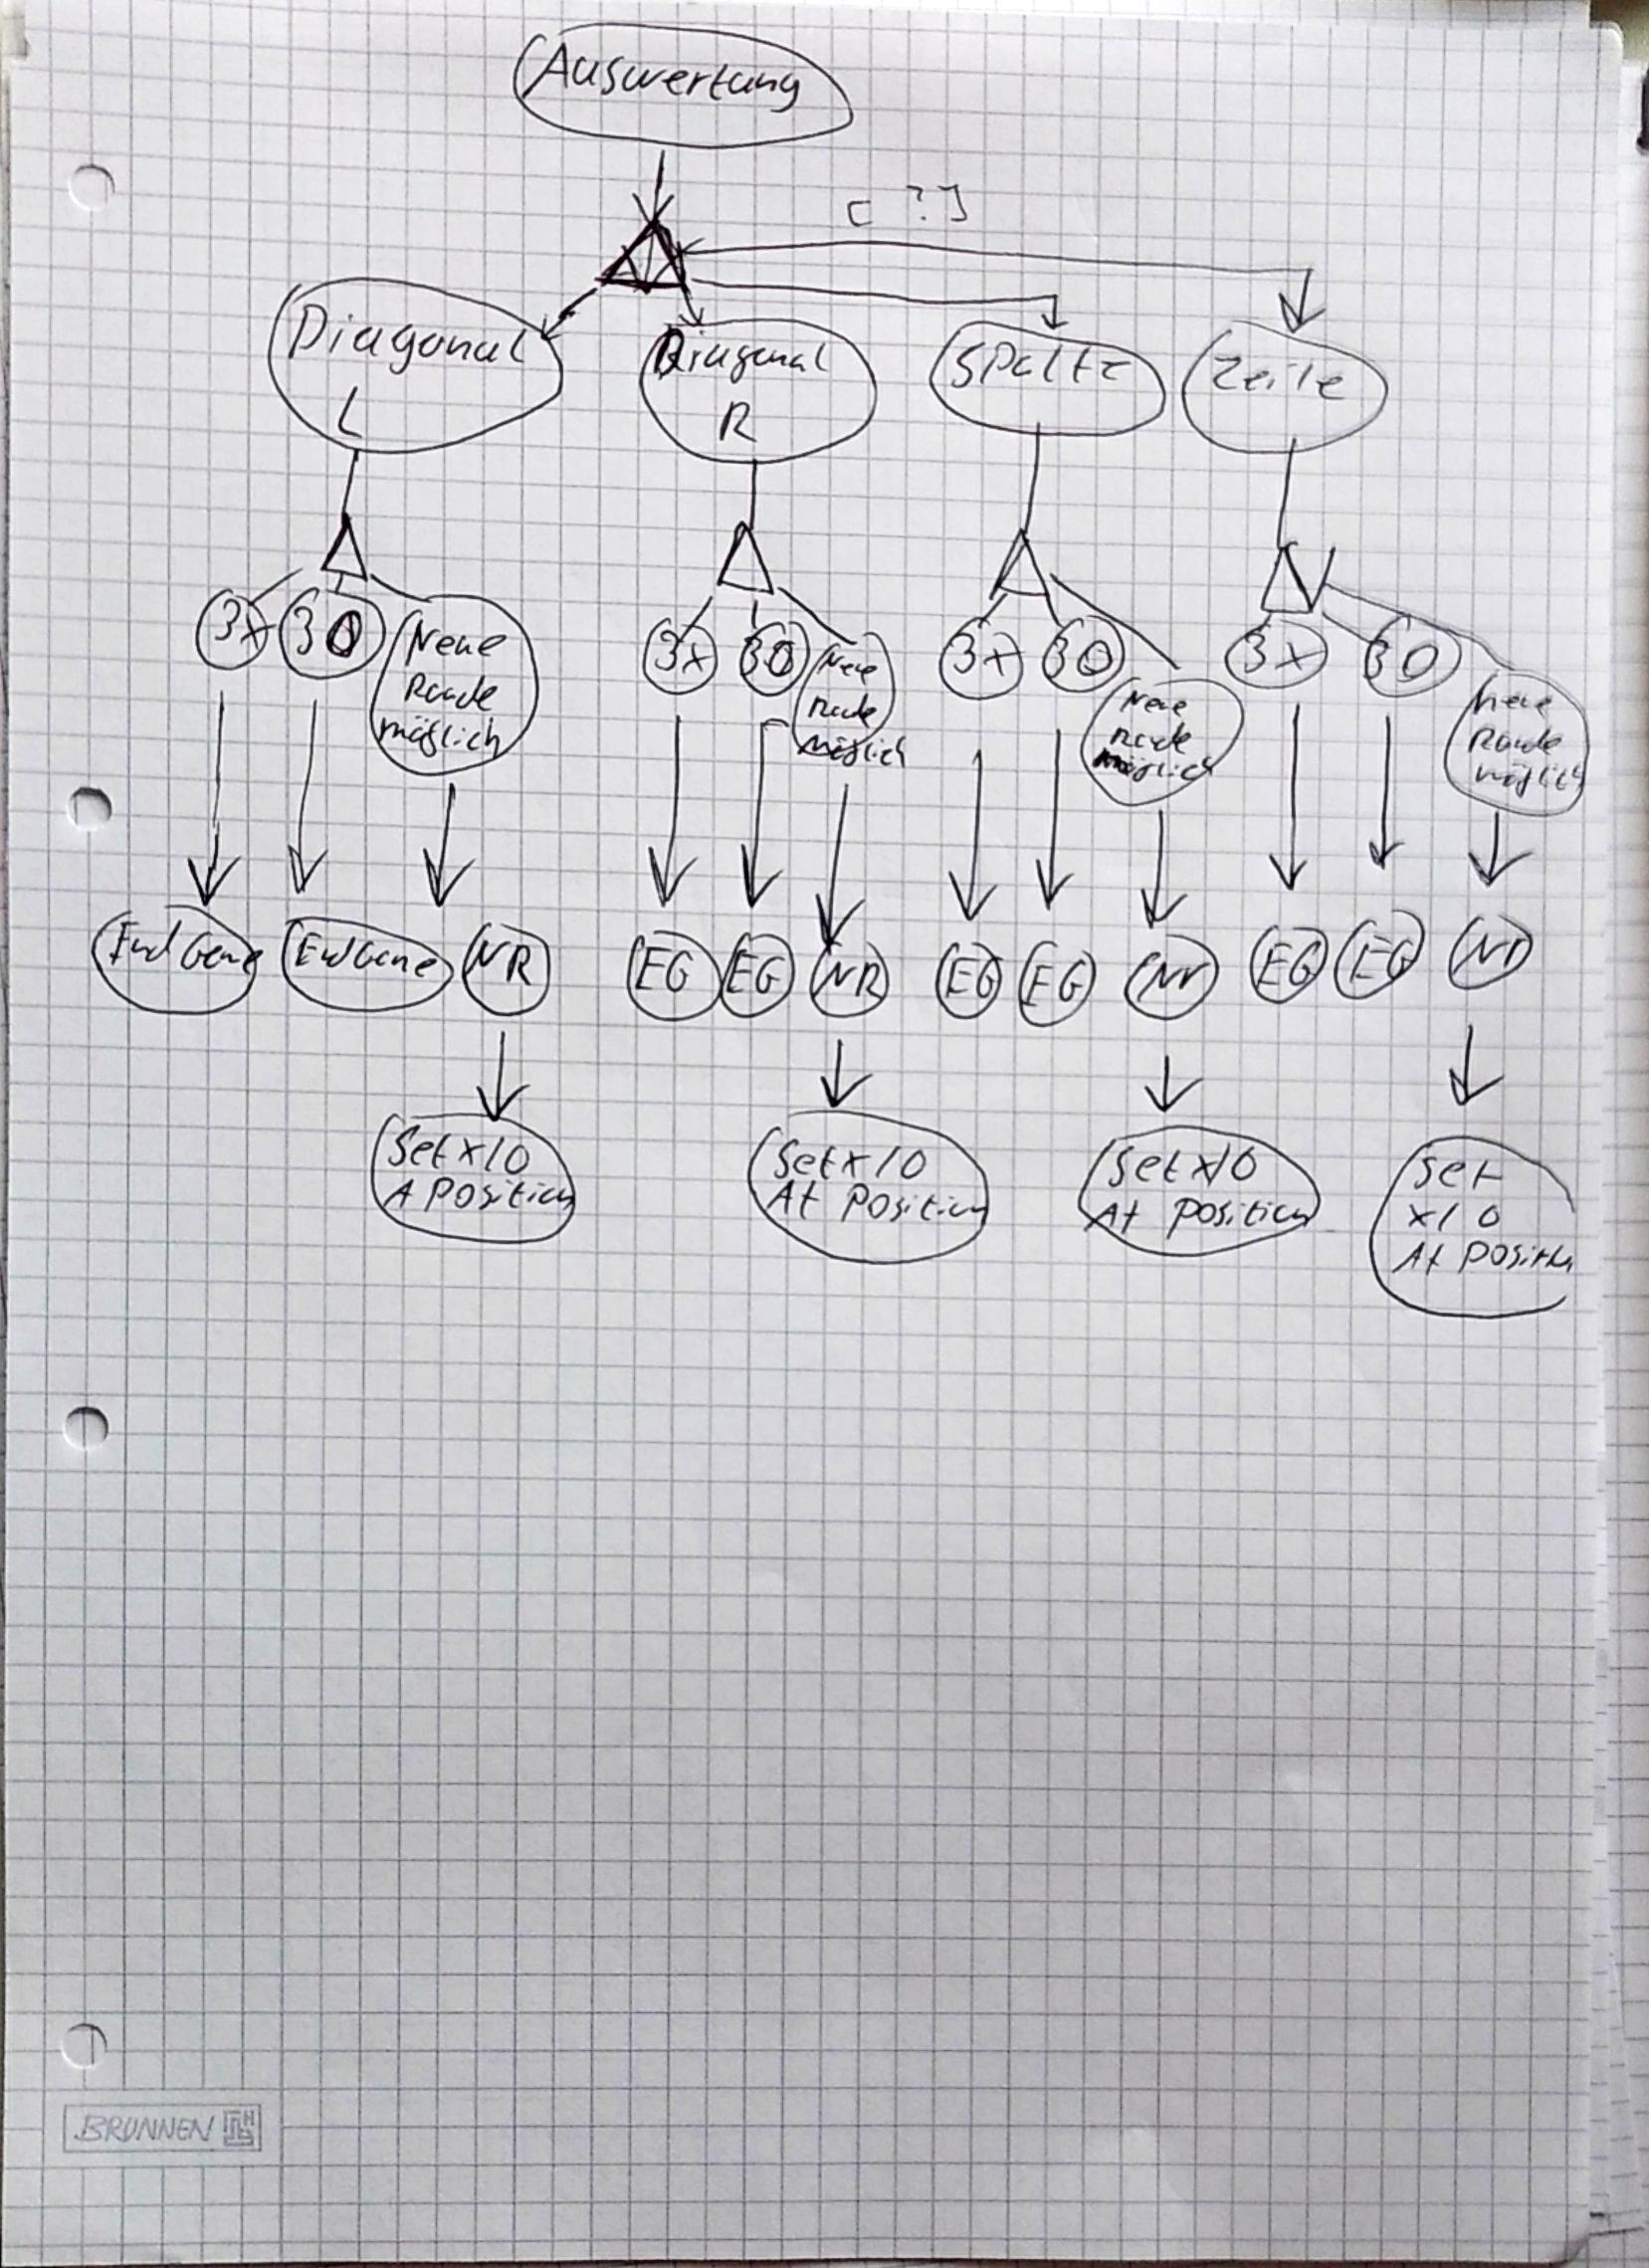 Auswertung
[ ? ]
Diagonal
L
Diagonal
R
Spalte
Zeile
3x
30
Neue
Runde
möglich
3x
30
Neue
Runde
möglich
3x
30
Neue
Runde
möglich
3x
30
Neue
Runde
möglich
End Game
EndGame
NR
EG
EG
NR
EG
EG
NR
EG
EG
NR
Set x/0
A Position
Set x/0
At Position
Set x/0
At Position
Set
x/0
At Position
BRUNNEN